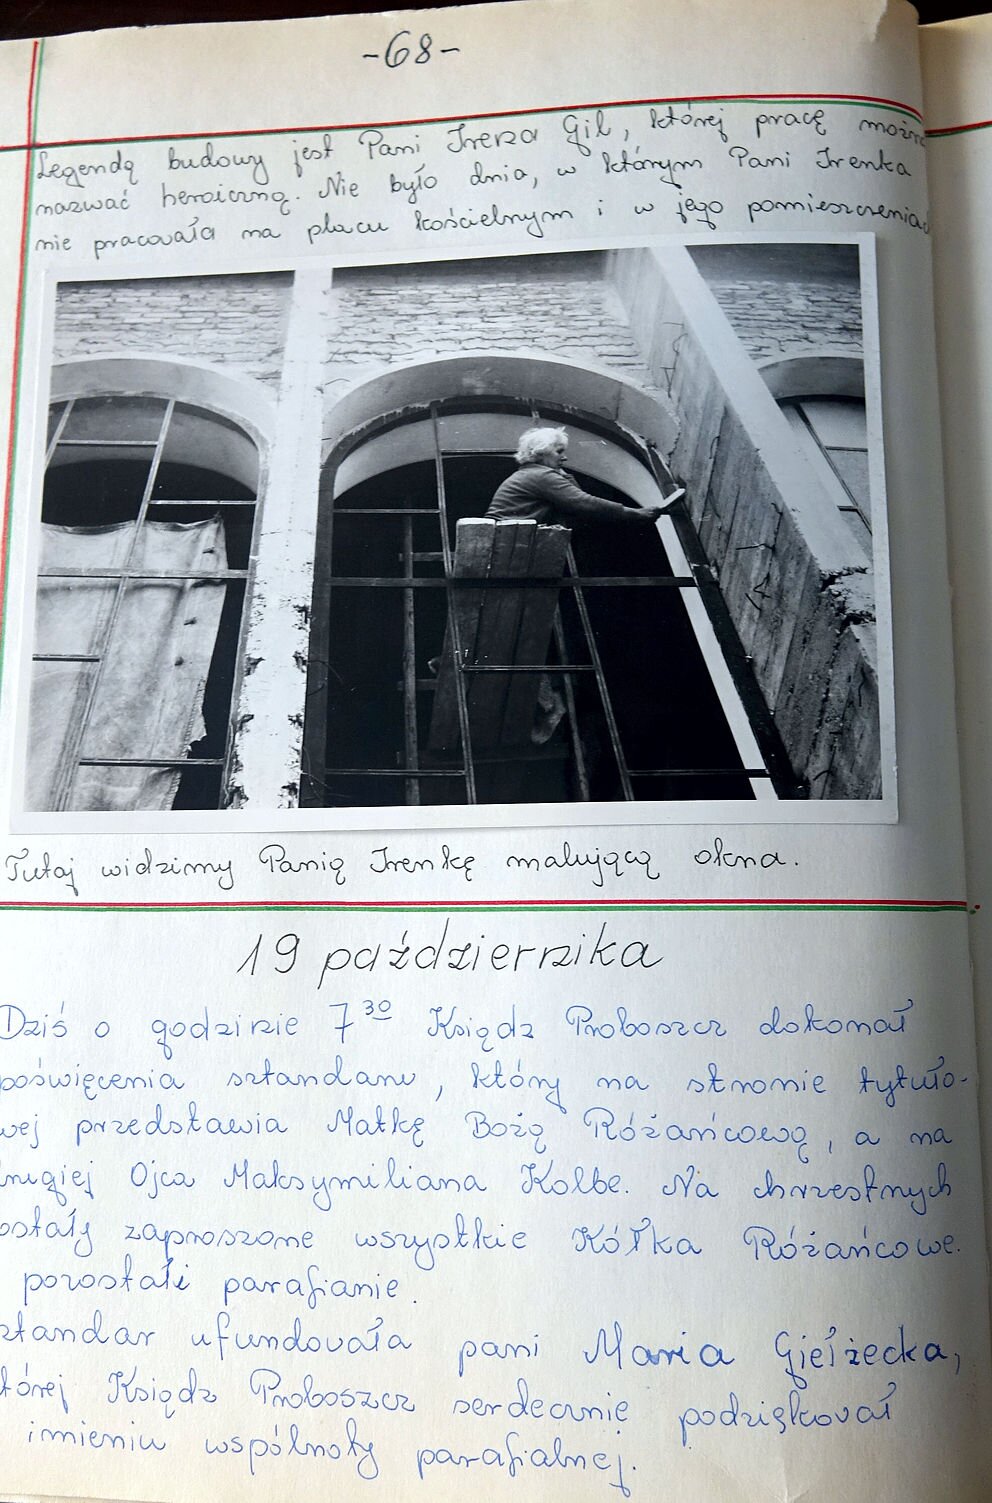 -68-
Legendą budowy jest Pani Irena Gil, której pracę można
nazwać heroiczną. Nie było dnia, w którym Pani Irenka
nie pracowała na placu kościelnym i w jego pomieszczeniac
Tutaj widzimy Panią Irenkę malującą okna.
19 października
Dziś o godzinie 7 30 Ksiądz Proboszcz dokonał
poświęcenia sztandaru, który na stronie tytuło-
wej przedstawia Matkę Bożą Różańcową, a na
rugiej Ojca Maksymiliana Kolbe. Na chrzestnych
ostały zaproszone wszystkie Kółka Różańcowe.
pozostali parafianie.
ztandar ufundowała pani Maria Giełżecka,
tórej Ksiądz Proboszcz serdecznie podziękował
imieniu wspólnoty parafialnej.